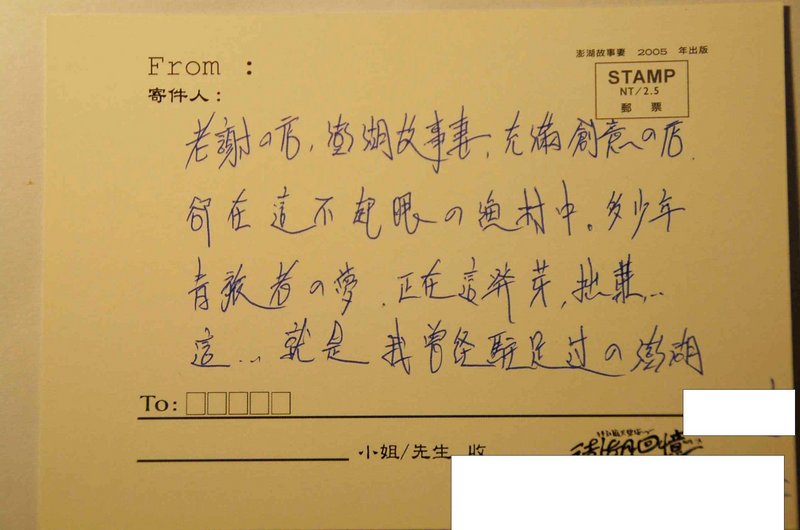 澎湖故事妻 2005 年出版
From :
STAMP
NT/2.5
郵 票
寄件人:
老謝の店, 澎湖故事妻, 充滿創意の店
卻在這不起眼の漁村中。多少年
青旅者の夢, 正在這発芽,
這... 就是我曾経駐足過の澎湖
To:
小姐/先生 收
回憶